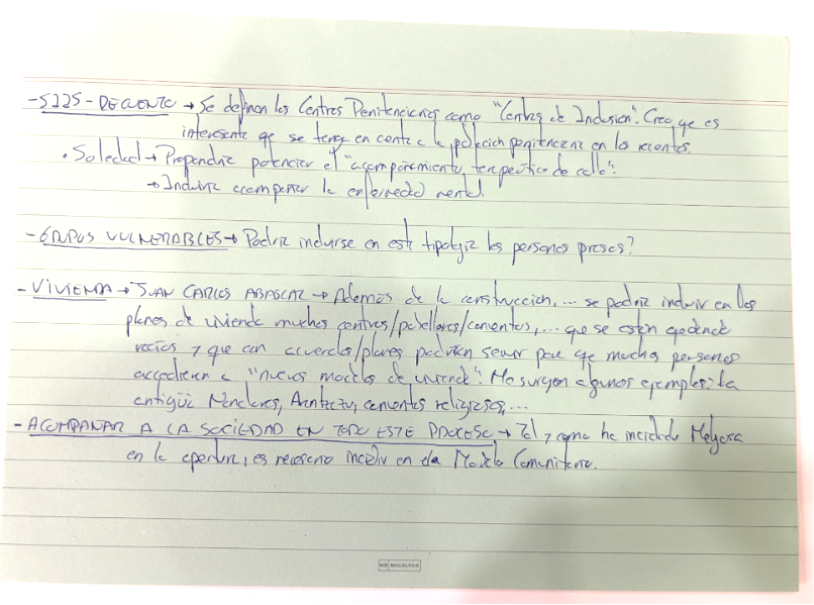 - S225 - RECUENTO → Se definen los Centros Penitenciarios como "Centros de Inclusión". Creo que es
interesante que se tenga en cuenta a la población penitenciaria en los recuentos.
• Soledad → Propondría potenciar el "acompañamiento terapéutico de calle".
→ Incluiría acompañar la enfermedad mental.
- GRUPOS VULNERABLES → Podría incluirse en esta tipología las personas presas?
- VIVIENDA → JUAN CARLOS ABASCAL → Además de la construcción, ... se podría incluir en los
planes de vivienda muchos centros/pabellones/conventos, ... que se están quedando
vacíos y que con acuerdos/planes podrían servir para que muchas personas
accedieran a "nuevos modelos de vivienda". Me surgen algunos ejemplos: la
antigua conventos religiosos, ...
- ACOMPAÑAR A LA SOCIEDAD EN TODO ESTE PROCESO → Tal y como ha incidido
en la apertura, es necesario incidir en el Modelo Comunitario.